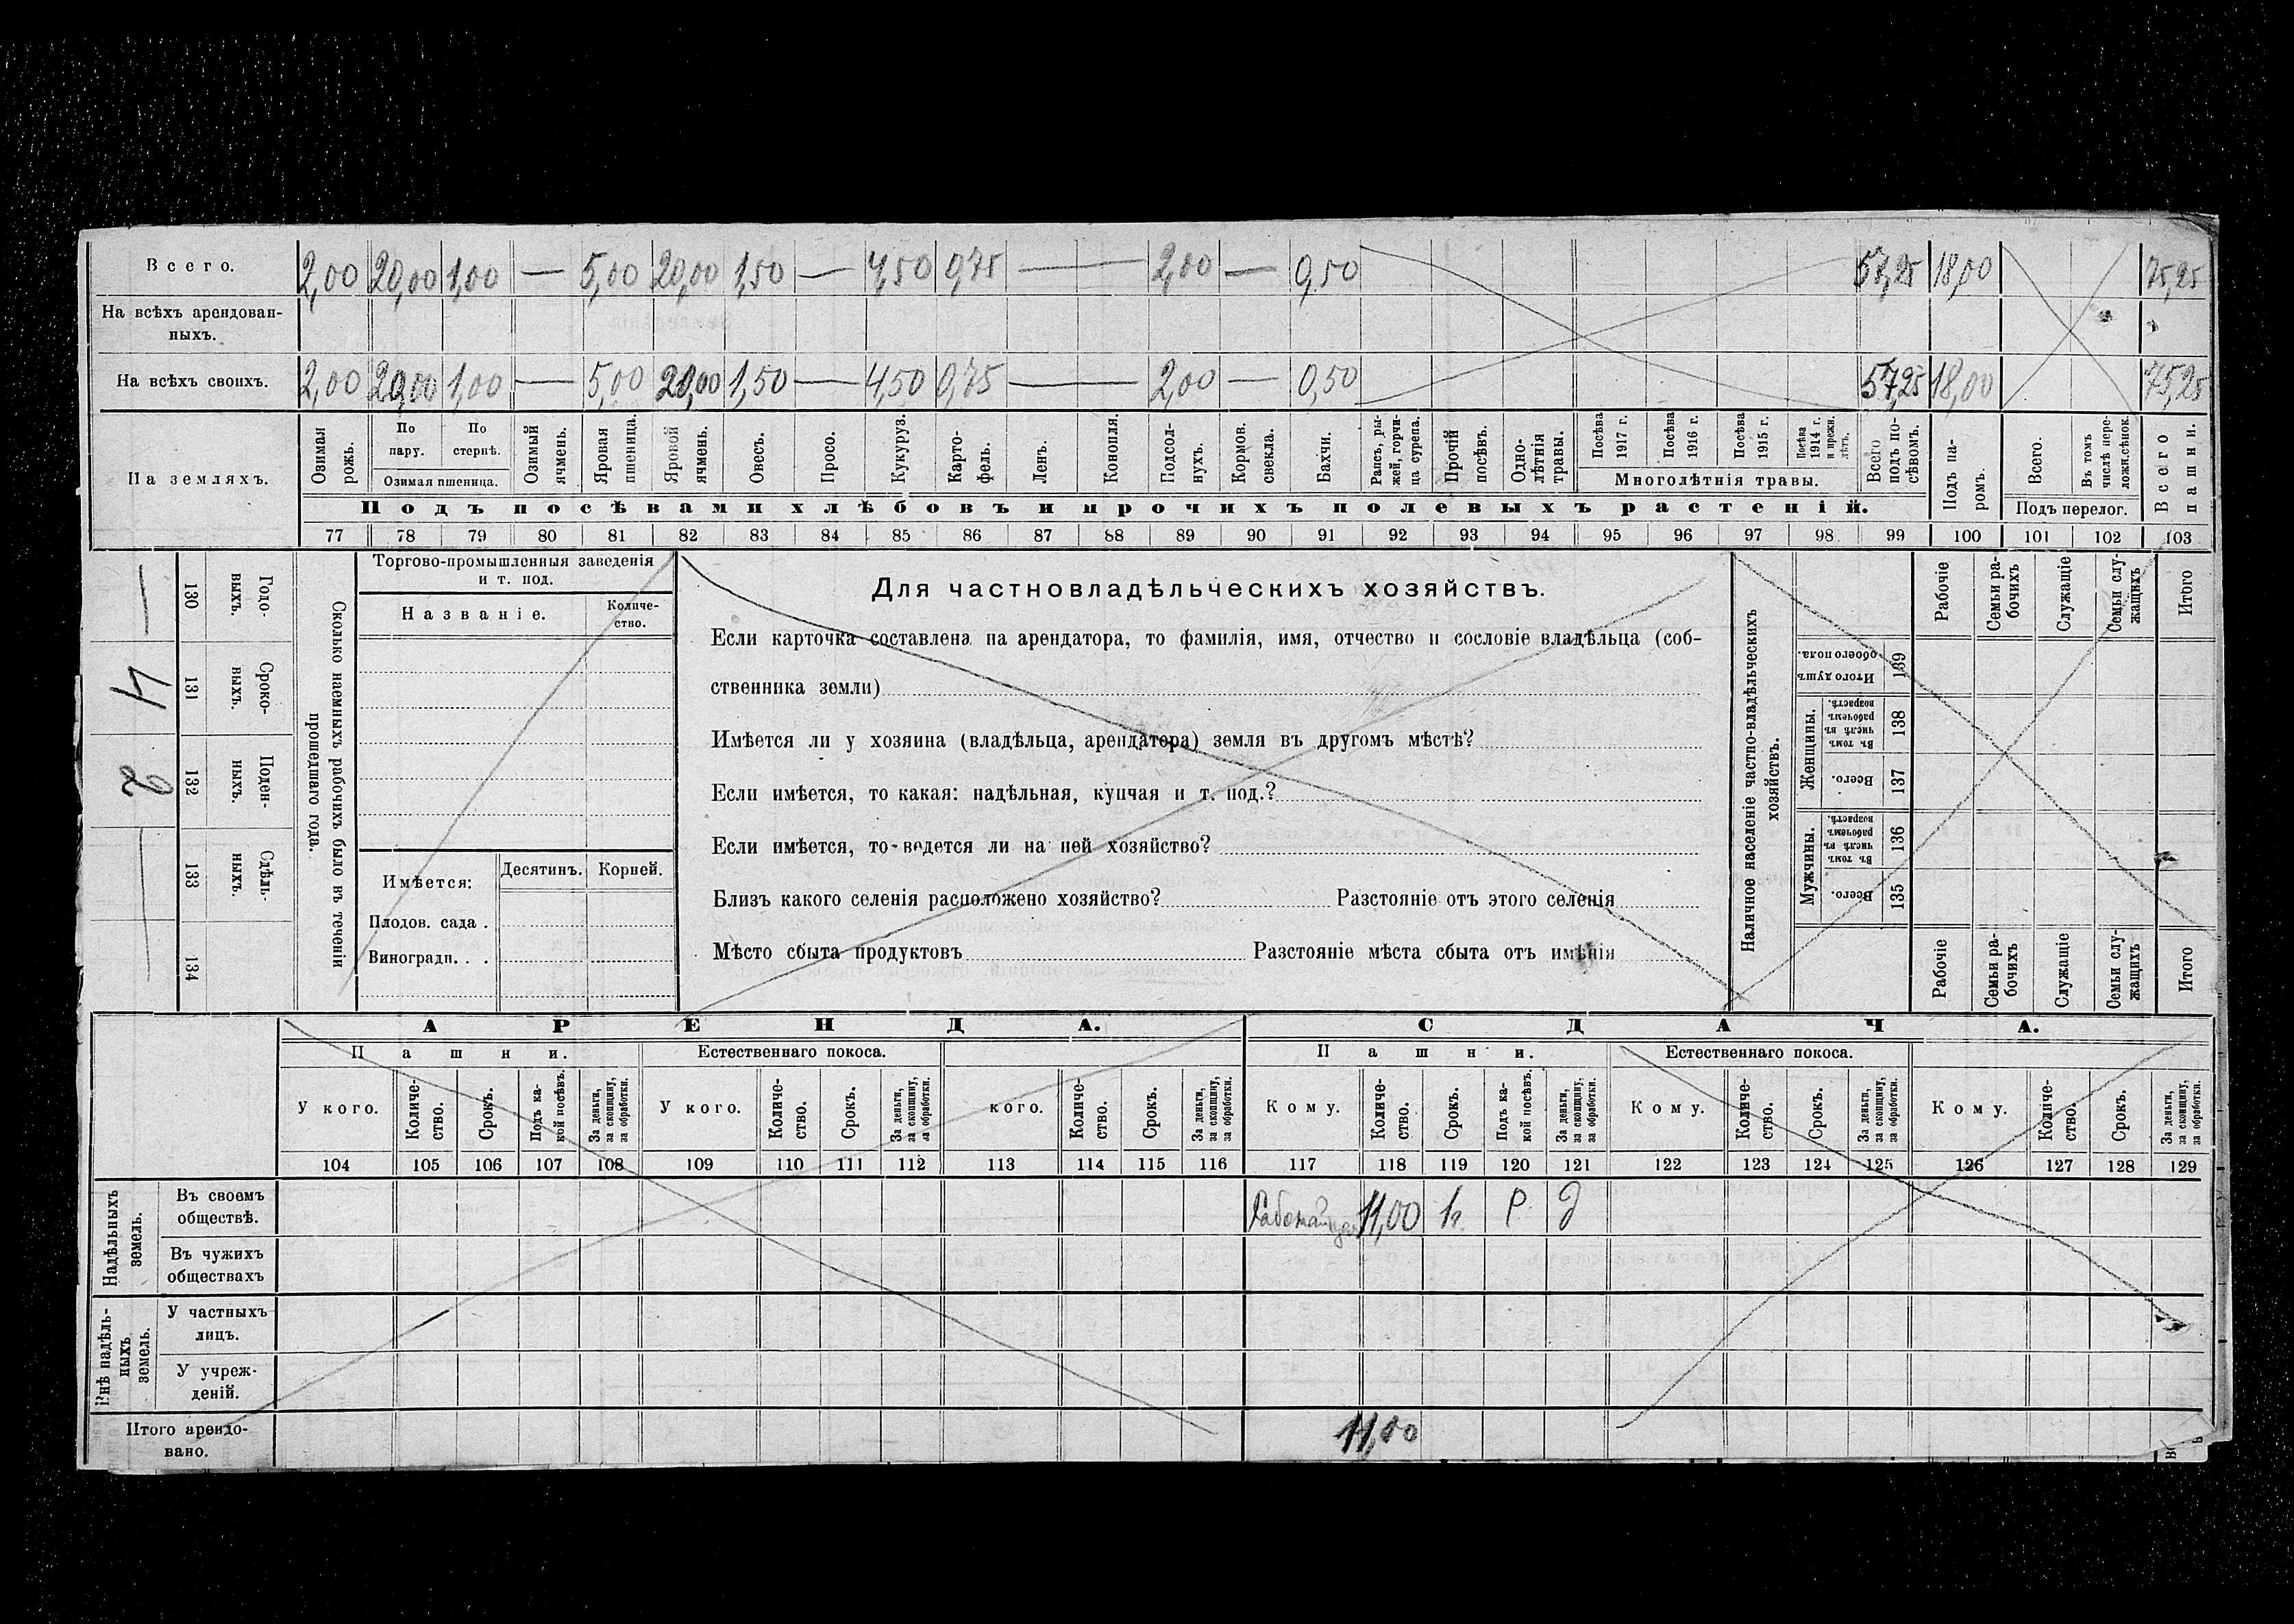 Всего. 2,00 20,00 1,00 — 5,00 20,00 1,50 — 4,50 0,75 — — 2,00 — 0,50 57,25 18,00 75,25
На всѣхъ арендован-
ныхъ.
На всѣхъ своихъ. 2,00 20,00 1,00 — 5,00 20,00 1,50 — 4,50 0,75 — — 2,00 — 0,50 57,25 18,00 75,25
На земляхъ.
Озимая рожь.
По пару.
По стернѣ.
Озимая пшеница.
Озимый ячмень.
Яровая пшеница.
Яровой ячмень.
Овесъ.
Просо.
Кукуруз.
Карто-
фель.
Ленъ.
Конопля.
Подсол-
нухъ.
Кормов. свекла.
Бахчи.
Рапсъ, ры-
жей, горчи-
ца сурепа.
Прочій посѣвъ.
Одно-
лѣтнія травы.
Посѣва 1917 г.
Посѣва 1916 г.
Посѣва 1915 г.
Посѣва 1914 г. и прежн. лѣтъ.
Многолѣтнія травы.
Всего подъ по-
сѣвомъ.
Подъ па-
ромъ.
Всего.
Въ томъ числѣ пере-
ложн.сѣнок.
Подъ перелог.
Всего пашни.
Подъ посѣвами хлѣбовъ и прочихъ полевыхъ растеній.
77 78 79 80 81 82 83 84 85 86 87 88 89 90 91 92 93 94 95 96 97 98 99 100 101 102 103
Сколько наемныхъ рабочихъ было въ теченіи
прошедшаго года.
Годо-
выхъ.
130 —
Сроко-
выхъ.
131 4
Поден-
ныхъ.
132 2
Сдѣль-
ныхъ.
133
134
Торгово-промышленныя заведенія
и т. под.
Названіе. Количе-
ство.
Имѣется: Десятинъ. Корней.
Плодов. сада .
Виноградн. . .
Для частновладѣльческихъ хозяйствъ.
Если карточка составлена на арендатора, то фамилія, имя, отчество и сословіе владѣльца (соб-
ственника земли)
Имѣется ли у хозяина (владѣльца, арендатора) земля въ другомъ мѣстѣ?
Если имѣется, то какая: надѣльная, купчая и т. под.?
Если имѣется, то ведется ли на ней хозяйство?
Близъ какого селенія расположено хозяйство? Разстояніе отъ этого селенія
Мѣсто сбыта продуктовъ Разстояніе мѣста сбыта отъ имѣнія
Наличное населеніе частно-владѣльческихъ
хозяйствъ.
Рабочіе
Семьи ра-
бочихъ
Служащіе
Семьи слу-
жащихъ
Итого
Итого душъ обоего пола. 139
Женщины.
Въ томъ числѣ въ рабочемъ возрастѣ. 138
Всего. 137
Мужчины.
Въ томъ числѣ въ рабочемъ возрастѣ. 136
Всего. 135
Рабочіе
Семьи ра-
бочихъ
Служащіе
Семьи слу-
жащихъ
Итого
АРЕНДА. СДАЧА.
Пашни. Естественнаго покоса. Пашни. Естественнаго покоса.
У кого.
Количе-
ство.
Срокъ.
Подъ ка-
кой посѣвъ.
За деньги, за скопщину, за обработки.
У кого.
Количе-
ство.
Срокъ.
За деньги, за скопщину, за обработки.
кого.
Количе-
ство.
Срокъ.
За деньги, за скопщину, за обработки.
Кому.
Количе-
ство.
Срокъ.
Подъ ка-
кой посѣвъ.
За деньги, за скопщину, за обработки.
Кому.
Количе-
ство.
Срокъ.
За деньги, за скопщину, за обработки.
Кому.
Количе-
ство.
Срокъ.
За деньги, за скопщину, за обработки.
104 105 106 107 108 109 110 111 112 113 114 115 116 117 118 119 120 121 122 123 124 125 126 127 128 129
Надѣльныхъ
земель.
Въ своемъ
обществѣ. 11,00
Въ чужихъ
обществахъ
Внѣ надѣль-
ныхъ
земель.
У частныхъ
лицъ.
У учреж-
деній.
Итого арендо-
вано. 11,00